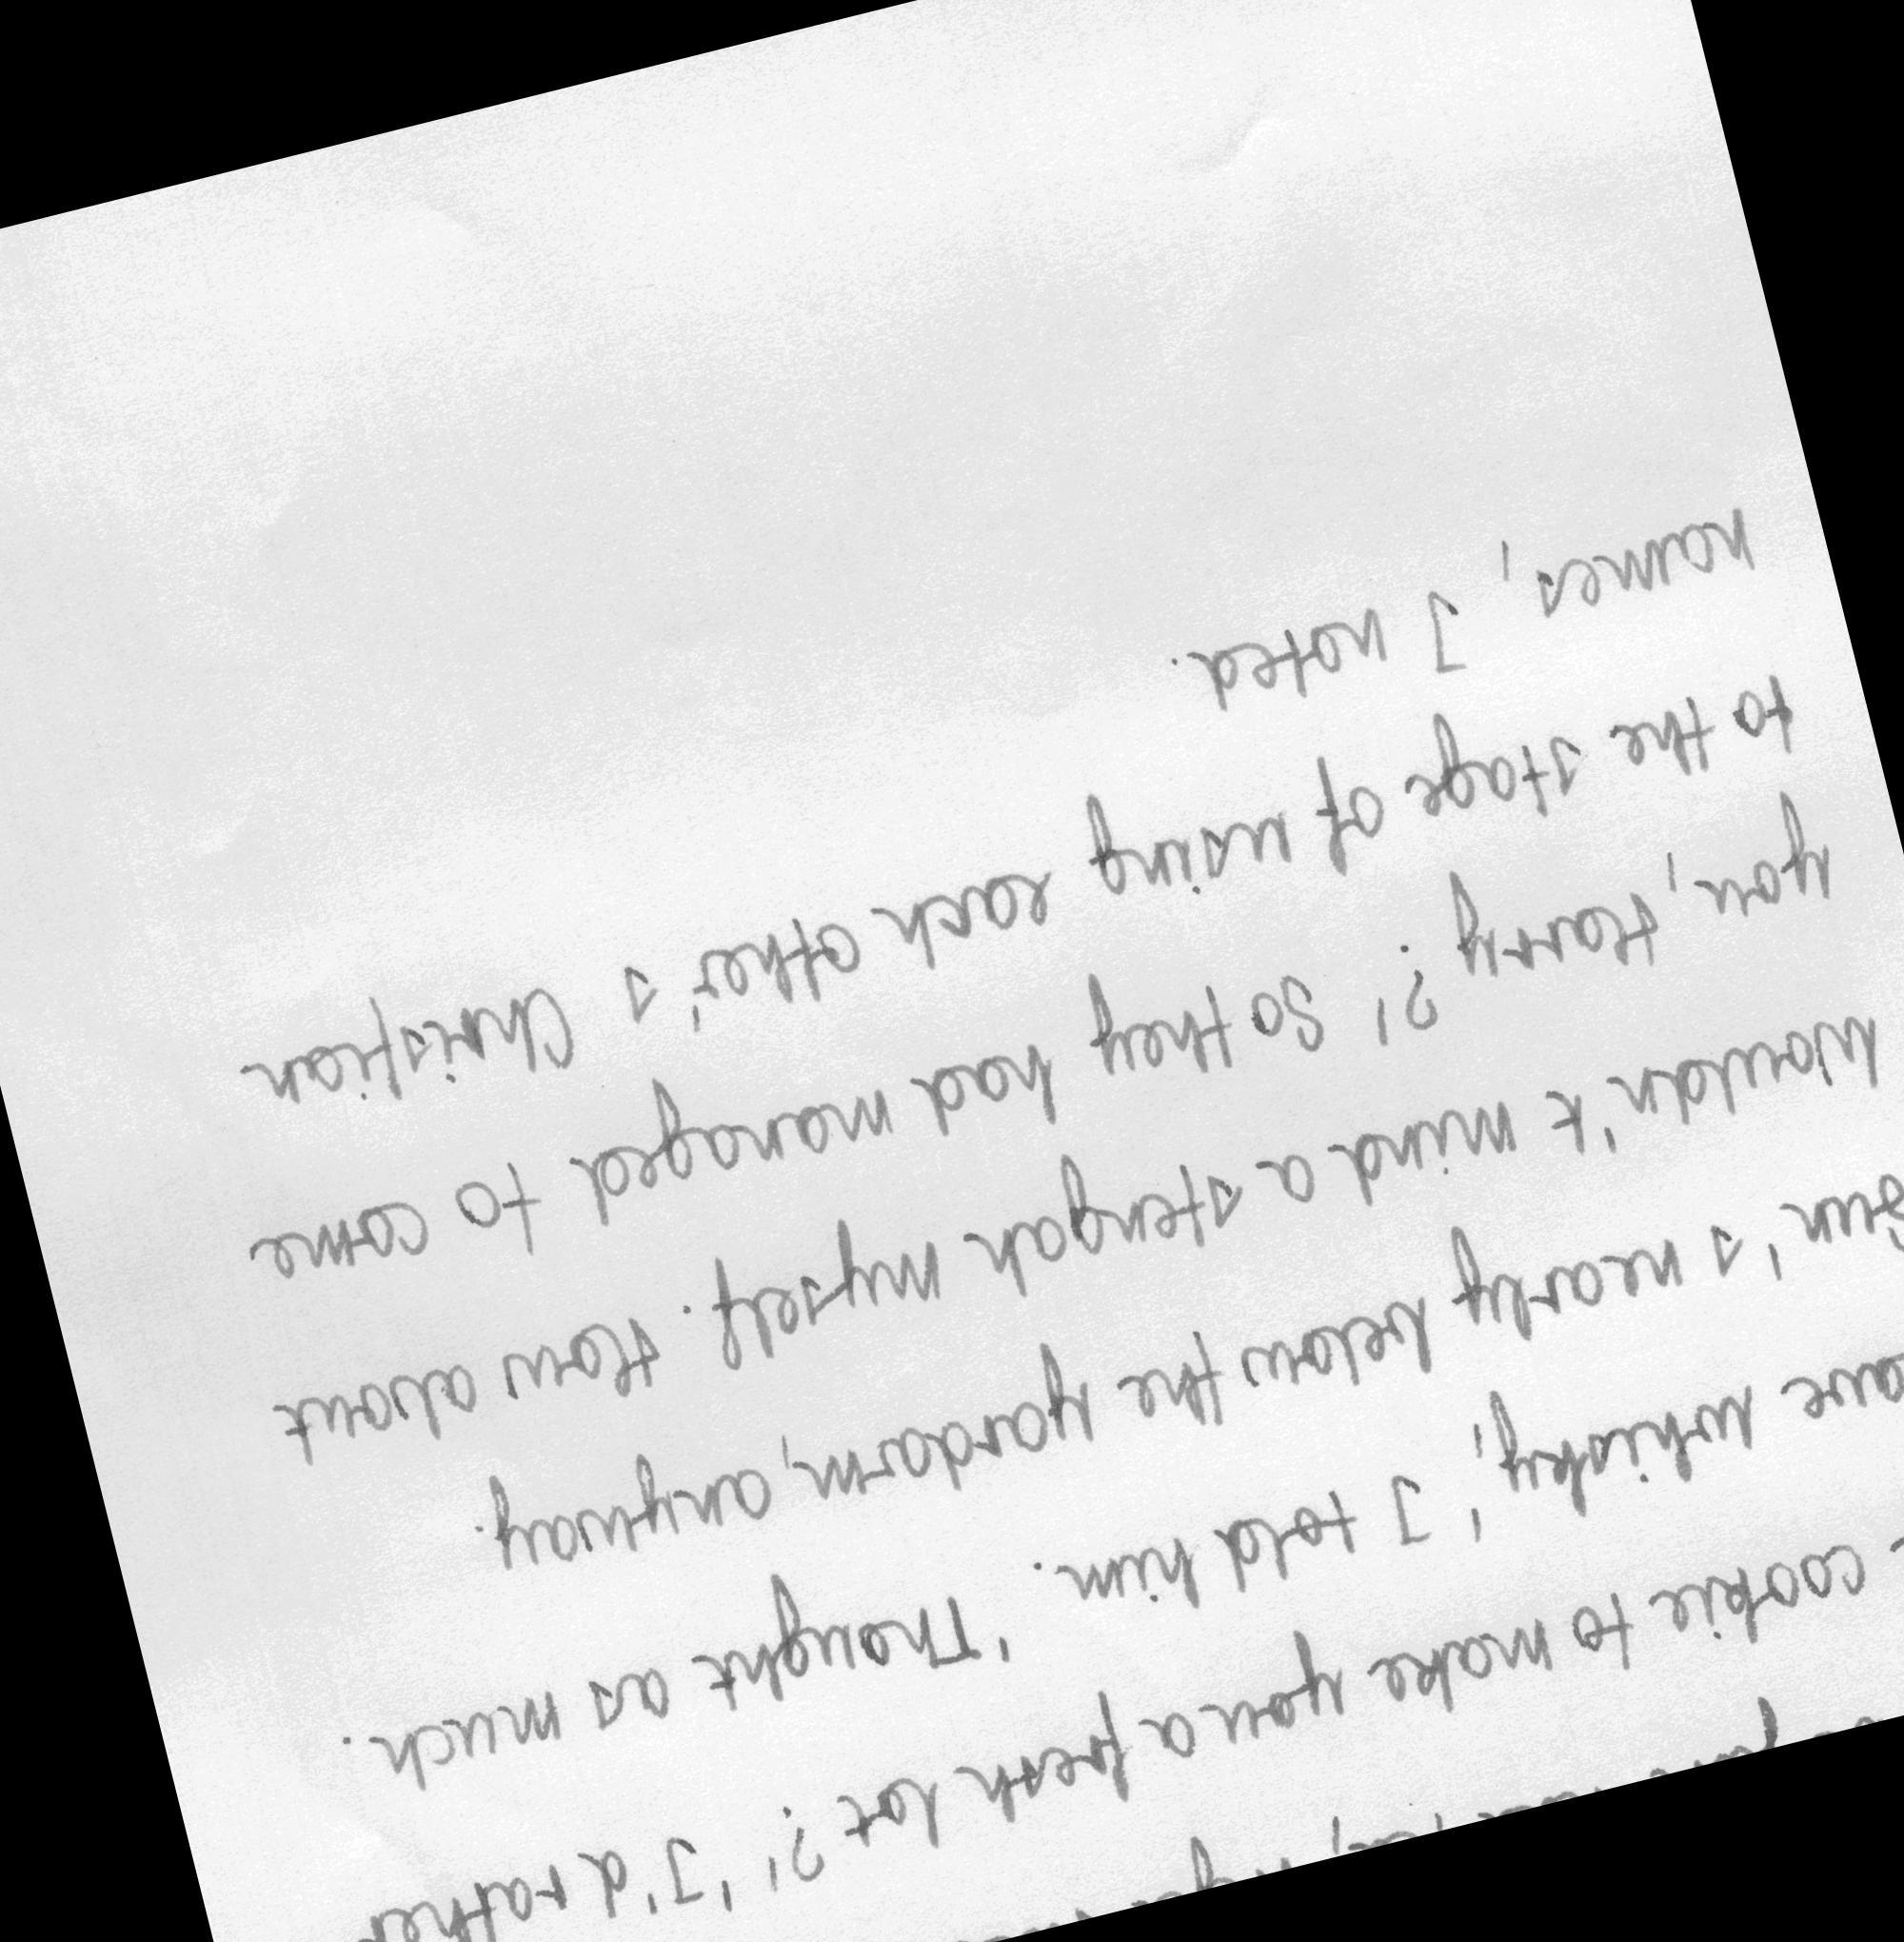 cookie to make you a fresh lot?' 'I'd rather
have whisky,' I told him. 'Thought as much.
Sun's nearly below the yardarm, anyway.
Wouldn't mind a stengah myself. How about
you, Harry?' So they had managed to come
to the stage of using each other's Christian
names, I noted.